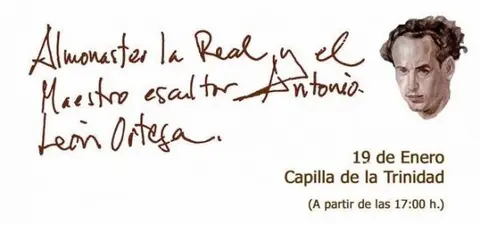 Almonaster la Real y el
Maestro escultor Antonio
León Ortega.
19 de Enero
Capilla de la Trinidad
(A partir de las 17:00 h.)